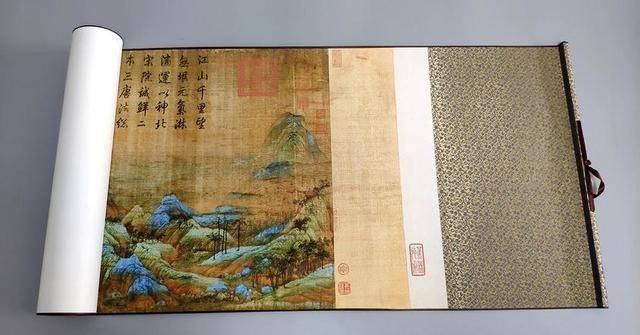 江山千里望
無垠元氣淋
漓運以神北
宋院誠鮮二
本三唐法総